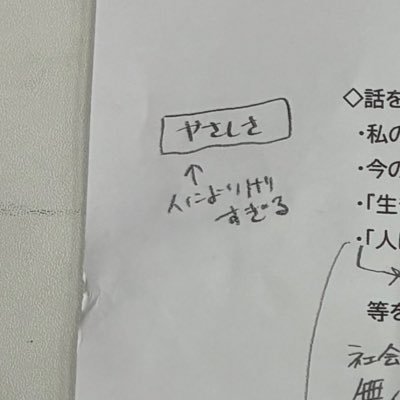 やさしさ
↑
人により
すぎる
◇話を
・私の
・今の
・「生
・「人
等を
社会
無